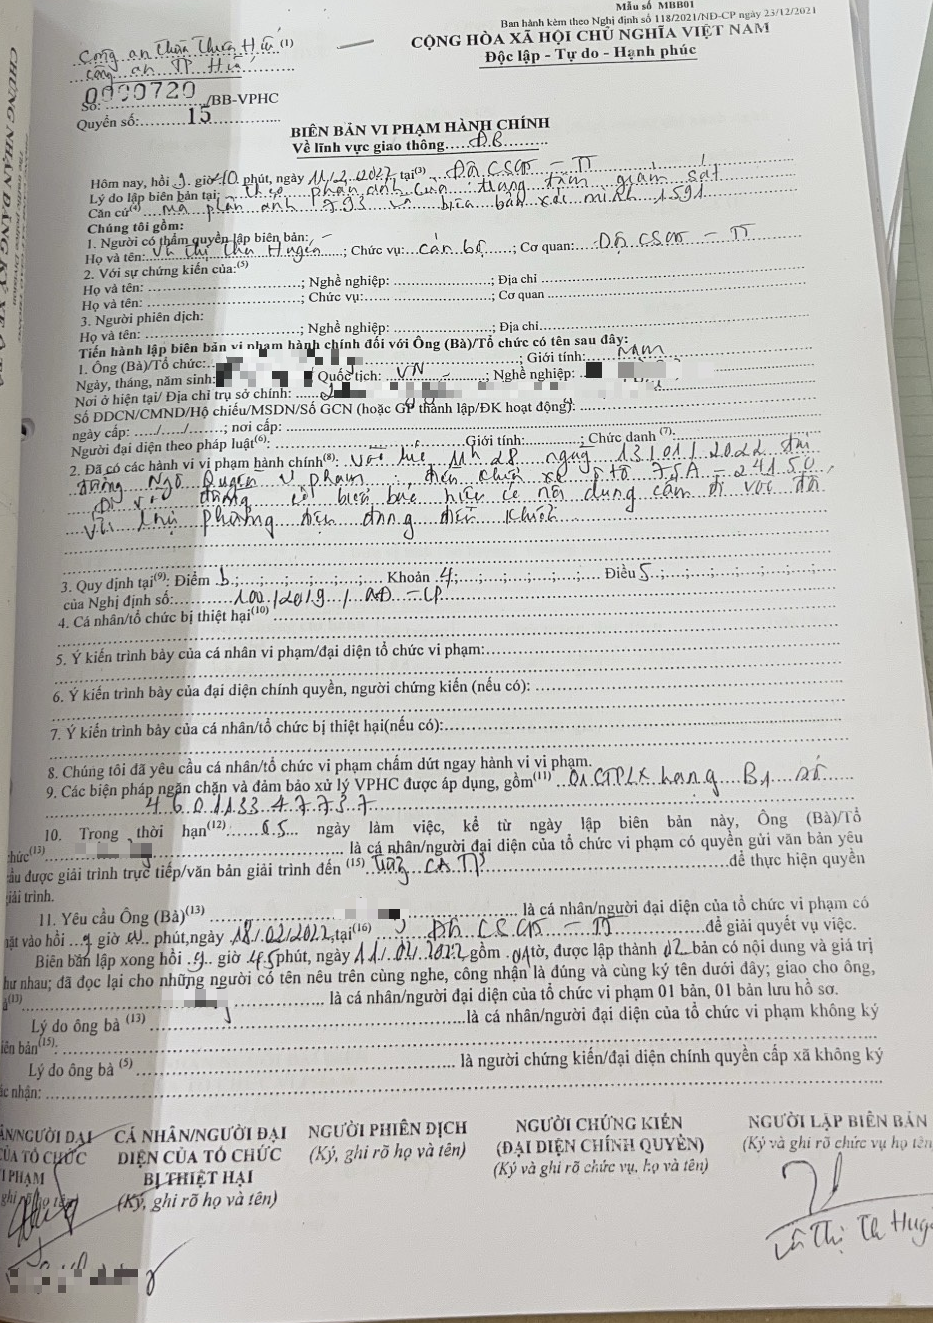 Mẫu số MBB01
Ban hành kèm theo Nghị định số 118/2021/NĐ-CP ngày 23/12/2021
CỘNG HÒA XÃ HỘI CHỦ NGHĨA VIỆT NAM
Độc lập - Tự do - Hạnh phúc
Công an Thừa Thiên Huế (1)
Công an TP Huế
Số: 0000720 /BB-VPHC
Quyển số: 15
BIÊN BẢN VI PHẠM HÀNH CHÍNH
Về lĩnh vực giao thông ĐB
Hôm nay, hồi 9 giờ 10 phút, ngày 11/2/2022 tại(3) Đội CSGT - TT
Lý do lập biên bản tại: Theo phản ánh của trung tâm giám sát
Căn cứ(4) mã phản ánh 793 và biên bản xác minh 1591
Chúng tôi gồm:
1. Người có thẩm quyền lập biên bản:
Họ và tên: Vũ Thị Thu Huyền; Chức vụ: cán bộ; Cơ quan: Đội CSGT - TT
2. Với sự chứng kiến của:(5)
Họ và tên: ; Nghề nghiệp: ; Địa chỉ
Họ và tên: ; Chức vụ: ; Cơ quan
3. Người phiên dịch:
Họ và tên: ; Nghề nghiệp: ; Địa chỉ
Tiến hành lập biên bản vi phạm hành chính đối với Ông (Bà)/Tổ chức có tên sau đây:
1. Ông (Bà)/Tổ chức: ; Giới tính: Nam
Ngày, tháng, năm sinh: Quốc tịch: VN; Nghề nghiệp:
Nơi ở hiện tại/ Địa chỉ trụ sở chính:
Số ĐDCN/CMND/Hộ chiếu/MSDN/Số GCN (hoặc GP thành lập/ĐK hoạt động):
ngày cấp: ..../..../......; nơi cấp:
Người đại diện theo pháp luật(6): Giới tính: ; Chức danh (7):
2. Đã có các hành vi vi phạm hành chính(8): Vào lúc 11h28 ngày 13/01/2022 tại
đường Ngô Quyền vi phạm: điều khiển xe ô tô 75A - 241.50
đi vào đường có biển báo hiệu có nội dung cấm đi vào đối
với loại phương tiện đang điều khiển
3. Quy định tại(9): Điểm b; Khoản 4; Điều 5
của Nghị định số: 100/2019/NĐ-CP
4. Cá nhân/tổ chức bị thiệt hại(10)
5. Ý kiến trình bày của cá nhân vi phạm/đại diện tổ chức vi phạm:
6. Ý kiến trình bày của đại diện chính quyền, người chứng kiến (nếu có):
7. Ý kiến trình bày của cá nhân/tổ chức bị thiệt hại(nếu có):
8. Chúng tôi đã yêu cầu cá nhân/tổ chức vi phạm chấm dứt ngay hành vi vi phạm.
9. Các biện pháp ngăn chặn và đảm bảo xử lý VPHC được áp dụng, gồm(11) 01 GPLX hạng B1 số
460113347737
10. Trong thời hạn(12) 05 ngày làm việc, kể từ ngày lập biên bản này, Ông (Bà)/Tổ
chức(13) là cá nhân/người đại diện của tổ chức vi phạm có quyền gửi văn bản yêu
cầu được giải trình trực tiếp/văn bản giải trình đến (15) CATP để thực hiện quyền
giải trình.
11. Yêu cầu Ông (Bà)(13) là cá nhân/người đại diện của tổ chức vi phạm có
mặt vào hồi 9 giờ phút, ngày 18/02/2022, tại(16) Đội CSGT - TT để giải quyết vụ việc.
Biên bản lập xong hồi 9 giờ 45 phút, ngày 11/02/2022 gồm 01 tờ, được lập thành 02 bản có nội dung và giá trị
như nhau; đã đọc lại cho những người có tên nêu trên cùng nghe, công nhận là đúng và cùng ký tên dưới đây; giao cho ông,
bà(13) là cá nhân/người đại diện của tổ chức vi phạm 01 bản, 01 bản lưu hồ sơ.
Lý do ông bà (13) là cá nhân/người đại diện của tổ chức vi phạm không ký
biên bản(15):
Lý do ông bà (5) là người chứng kiến/đại diện chính quyền cấp xã không ký
xác nhận:
CÁ NHÂN/NGƯỜI ĐẠI DIỆN CỦA TỔ CHỨC BỊ THIỆT HẠI
(Ký, ghi rõ họ và tên)
NGƯỜI PHIÊN DỊCH
(Ký, ghi rõ họ và tên)
NGƯỜI CHỨNG KIẾN
(ĐẠI DIỆN CHÍNH QUYỀN)
(Ký và ghi rõ chức vụ, họ và tên)
NGƯỜI LẬP BIÊN BẢN
(Ký và ghi rõ chức vụ họ tên